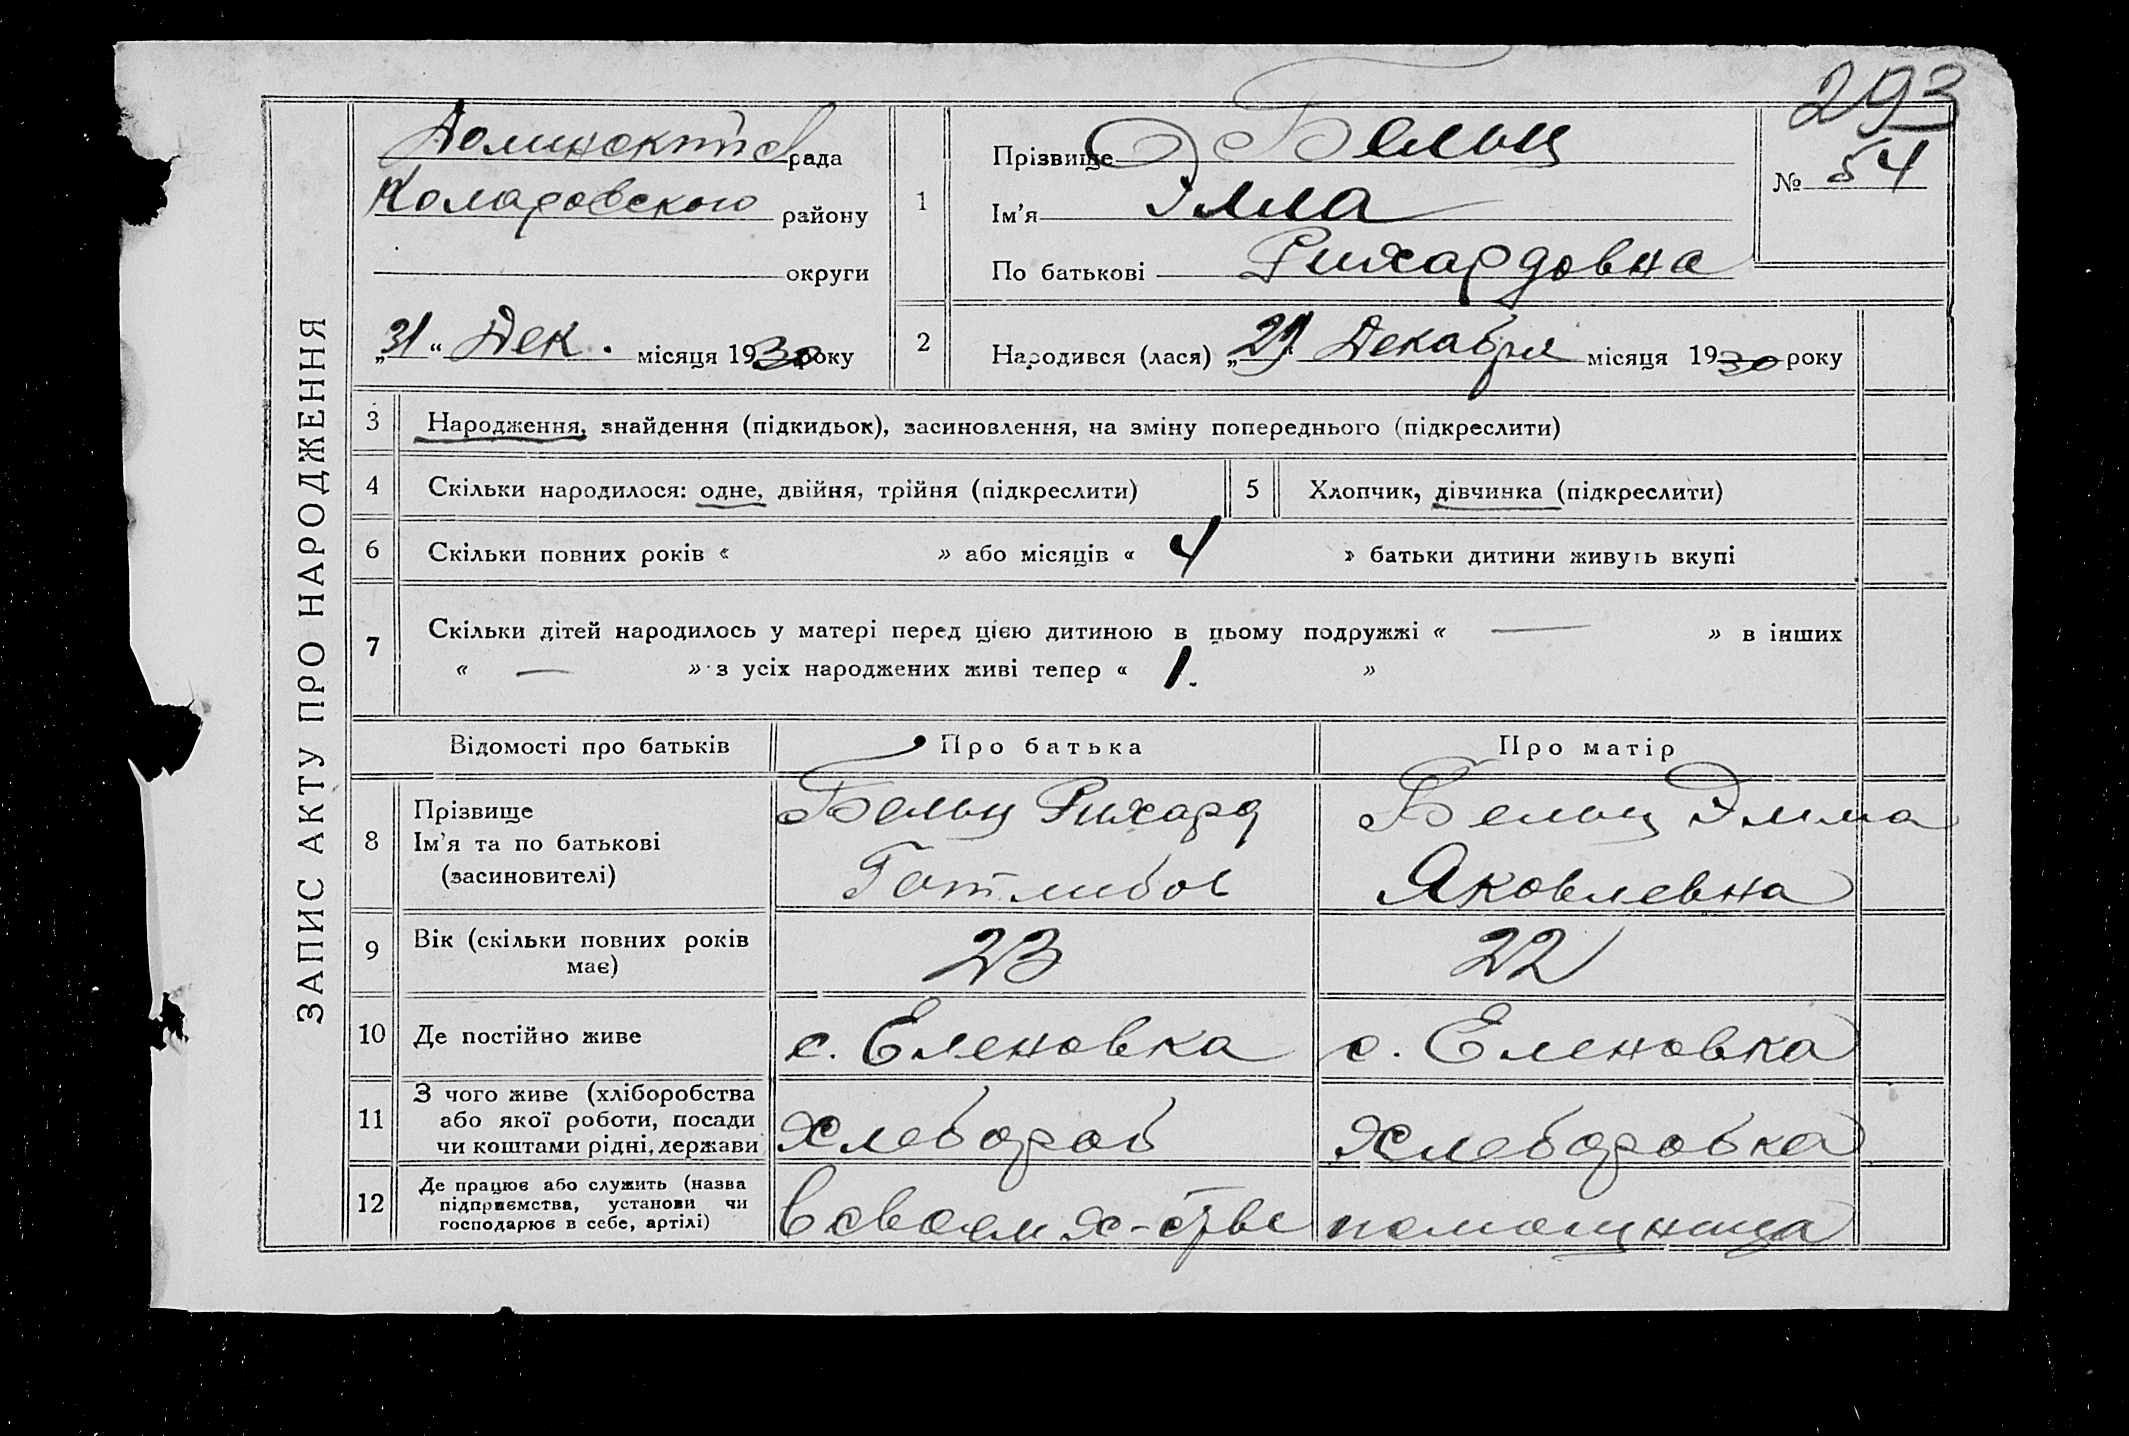 293
ЗАПИС АКТУ ПРО НАРОДЖЕННЯ
рада
Коларовского району
округи
„31“ Дек. місяця 1930 року
1
Прізвище Бельц
Ім'я Элла
По батькові Рихардовна
№ 54
2
Народився (лася) „29“ Декабря місяця 1930 року
3 Народження, знайдення (підкидьок), засиновлення, на зміну попереднього (підкреслити)
4 Скільки народилося: одне, двійня, трійня (підкреслити) 5 Хлопчик, дівчинка (підкреслити)
6 Скільки повних років « » або місяців « 4 » батьки дитини живуть вкупі
7 Скільки дітей народилось у матері перед цією дитиною в цьому подружжі « — » в інших
« — » з усіх народжених живі тепер « 1. »
Відомості про батьків Про батька Про матір
8 Прізвище
Ім'я та по батькові
(засиновителі)
Бельц Рихард
Готлибов
Бельц Эмма
Яковлевна
9 Вік (скільки повних років
має)
23 22
10 Де постійно живе с. Еленовка с. Еленовка
11 З чого живе (хліборобства
або якої роботи, посади
чи коштами рідні, держави
Хлебороб Хлеборобка
12 Де працює або служить (назва
підприємства, установи чи
господарює в себе, артілі)
в своем х-стве помощница